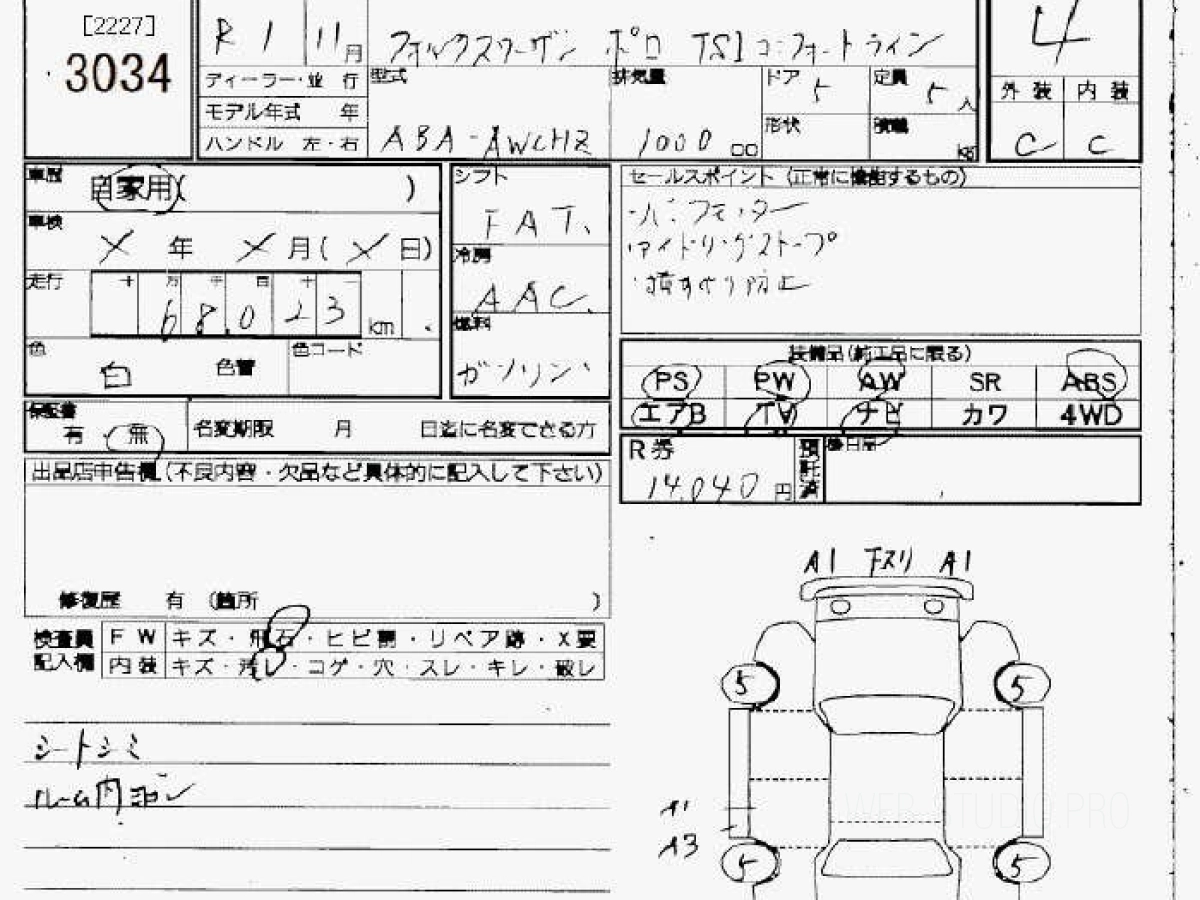 [2227]
3034
R 1 11月
フォルクスワーゲン ポロ TSI コンフォートライン
4
ディーラー・並 行
モデル年式 年
ハンドル 左・右
型式
ABA-AWCHZ
排気量
1000 cc
ドア 5
定員 5 人
形状
積載 kg
外装 内装
C C
車歴 自家用( )
車検
X 年 X 月( X 日)
走行 十 万 千 百 十 一
68,023 km
色 白 色替 色コード
シフト
FAT.
冷房
AAC.
燃料
ガソリン
セールスポイント (正常に機能するもの)
アイドリングストップ
・横すべり防止
装備品(純正品に限る)
PS PW AW SR ABS
エアB TV ナビ カワ 4WD
保証書
有 ・ 無
名変期限 月 日迄に名変できる方
R券
14,040 円
預託済
後日品
出品店申告欄(不良内容・欠品など具体的に記入して下さい)
修復歴 有 (箇所 )
検査員記入欄
FW キズ・飛石・ヒビ割・リペア跡・X要
内装 キズ・汚レ・コゲ・穴・スレ・キレ・破レ
シートシミ
ルーム内ヨゴレ
A1 下スリ A1
5 5
A1
A3
5 5
WEB STUDIO PRO